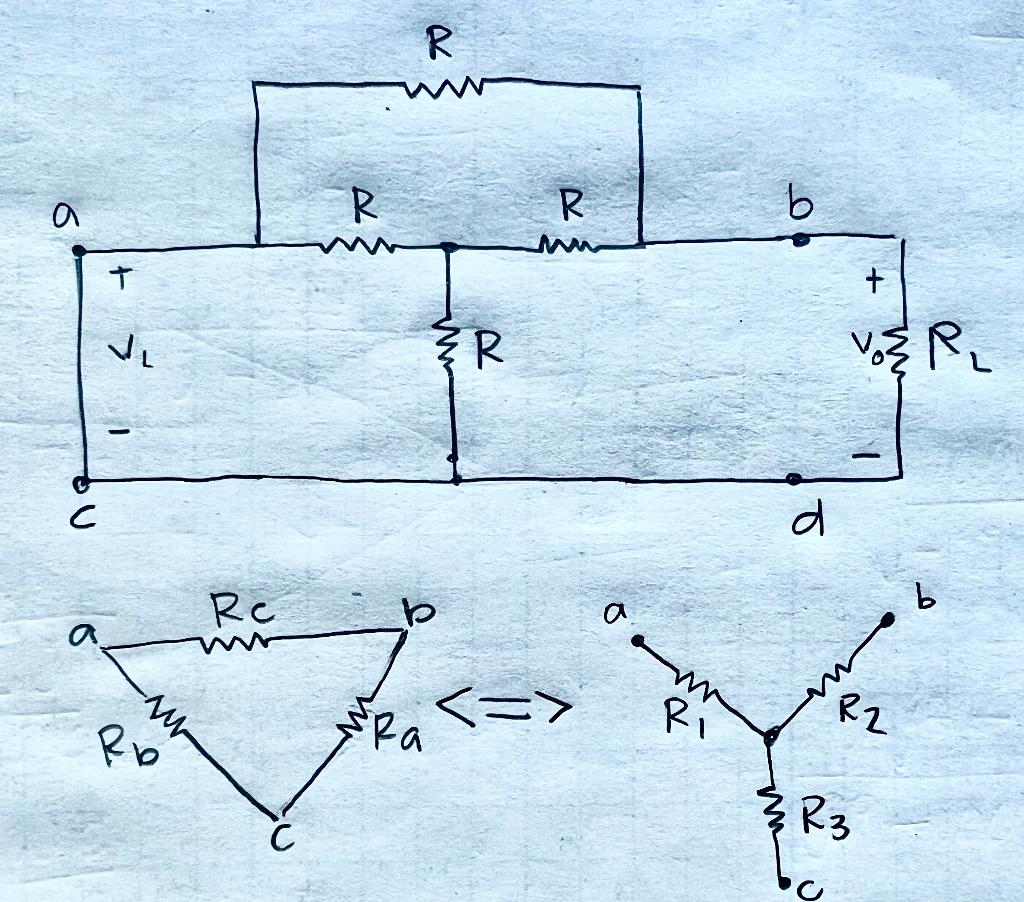 R
a R R b
+ +
V_L R V_o R_L
- -
c d
a R_c b a b
<=>
R_b R_a R_1 R_2
c R_3
c